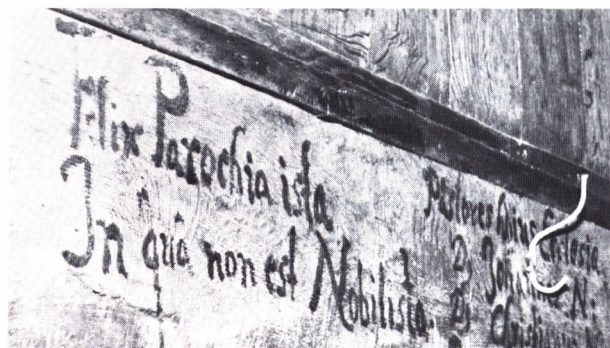 Felix Parochia ista
In qua non est Nobilista.
Pastores hujus Ecclesia
D. Johannes N:
D. Christianus